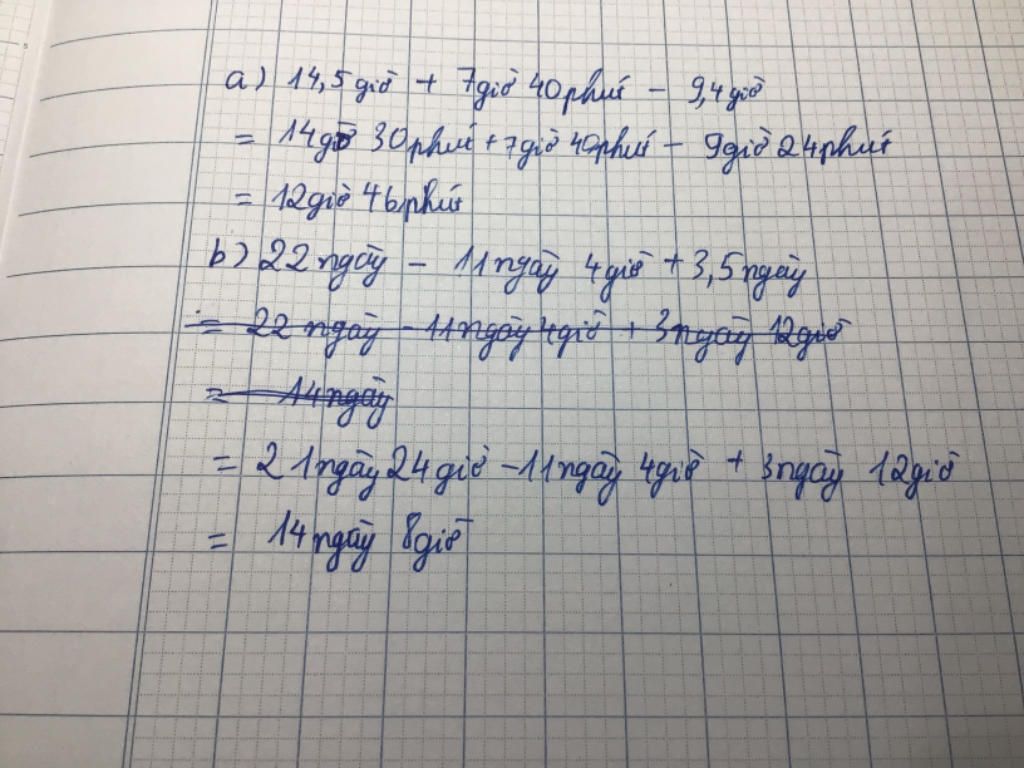 a) 14,5 giờ + 7 giờ 40 phút - 9,4 giờ
= 14 giờ 30 phút + 7 giờ 40 phút - 9 giờ 24 phút
= 12 giờ 46 phút
b) 22 ngày - 11 ngày 4 giờ + 3,5 ngày
= 22 ngày - 11 ngày 4 giờ + 3 ngày 12 giờ
= 14 ngày
= 21 ngày 24 giờ - 11 ngày 4 giờ + 3 ngày 12 giờ
= 14 ngày 8 giờ